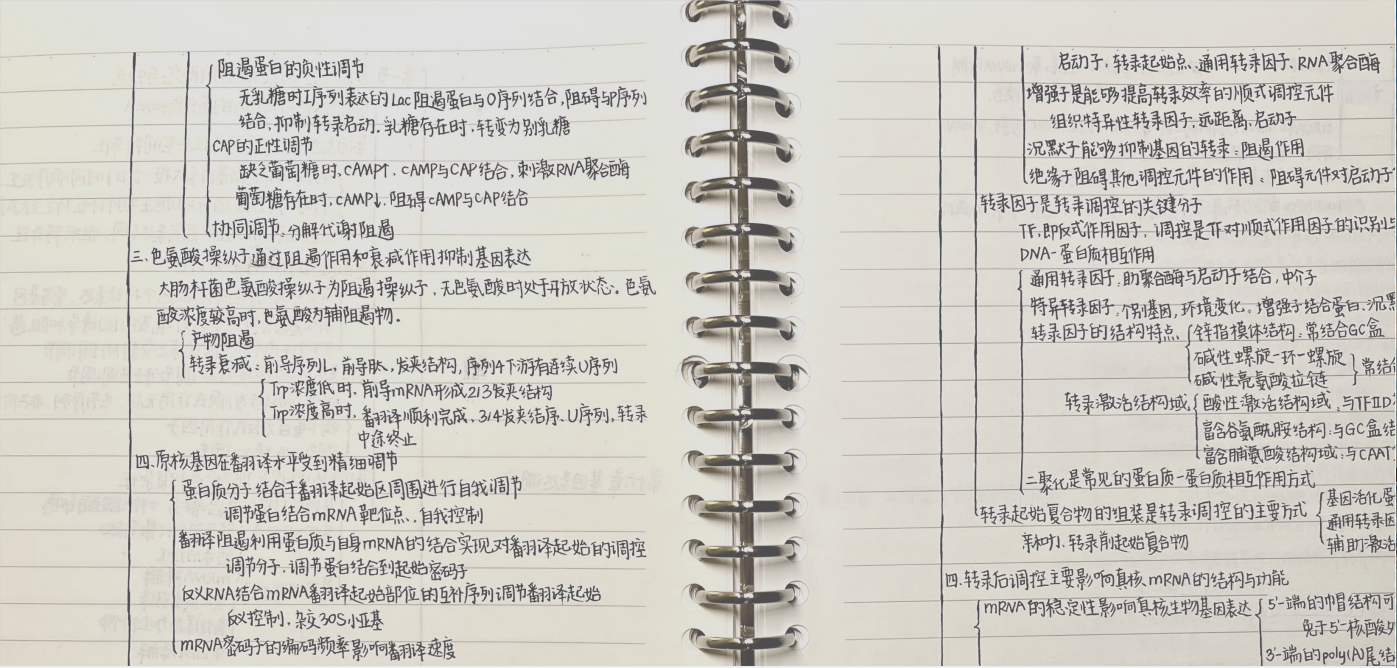 阻遏蛋白的负性调节
无乳糖时I序列表达的Lac阻遏蛋白与O序列结合,阻碍与P序列
结合,抑制转录启动。乳糖存在时,转变为别乳糖
CAP的正性调节
缺乏葡萄糖时,cAMP↑,cAMP与CAP结合,刺激RNA聚合酶
葡萄糖存在时,cAMP↓,阻碍cAMP与CAP结合
协同调节:分解代谢阻遏
三.色氨酸操纵子通过阻遏作用和衰减作用抑制基因表达
大肠杆菌色氨酸操纵子为阻遏操纵子,无色氨酸时处于开放状态。色氨
酸浓度较高时,色氨酸为辅阻遏物。
产物阻遏
转录衰减:前导序列L,前导肽,发夹结构,序列4下游有连续U序列
Trp浓度低时,前导mRNA形成2/3发夹结构
Trp浓度高时,翻译顺利完成,3/4发夹结序、U序列,转录
中途终止
四.原核基因在翻译水平受到精细调节
蛋白质分子结合于翻译起始区周围进行自我调节
调节蛋白结合mRNA靶位点,自我控制
翻译阻遏利用蛋白质与自身mRNA的结合实现对翻译起始的调控
调节分子,调节蛋白结合到起始密码子
反义RNA结合mRNA翻译起始部位的互补序列调节翻译起始
反义控制,杂交30S小亚基
mRNA密码子的编码频率影响翻译速度
启动子:转录起始点、通用转录因子、RNA聚合酶
增强子是能够提高转录效率的顺式调控元件
组织特异性转录因子,远距离,启动子
沉默子能够抑制基因的转录:阻遏作用
绝缘子阻碍其他调控元件的作用:阻碍元件对启动子
转录因子是转录调控的关键分子
TF,即反式作用因子,调控是TF对顺式作用因子的识别
DNA-蛋白质相互作用
通用转录因子:助聚合酶与启动子结合,中介子
特异转录因子:个别基因,环境变化。增强子结合蛋白,沉默
转录因子的结构特点 锌指模体结构:常结合GC盒
碱性螺旋-环-螺旋
碱性亮氨酸拉链 常结
转录激活结构域 酸性激活结构域:与TFIID
富含谷氨酰胺结构:与GC盒结
富含脯氨酸结构域:与CAAT
二聚化是常见的蛋白质-蛋白质相互作用方式
转录起始复合物的组装是转录调控的主要方式 基因活化蛋
通用转录因
亲和力,转录前起始复合物 辅助激活
四.转录后调控主要影响真核mRNA的结构与功能
mRNA的稳定性影响真核生物基因表达 5'-端的帽结构可
免于5'-核酸外
3'-端的poly(A)尾结